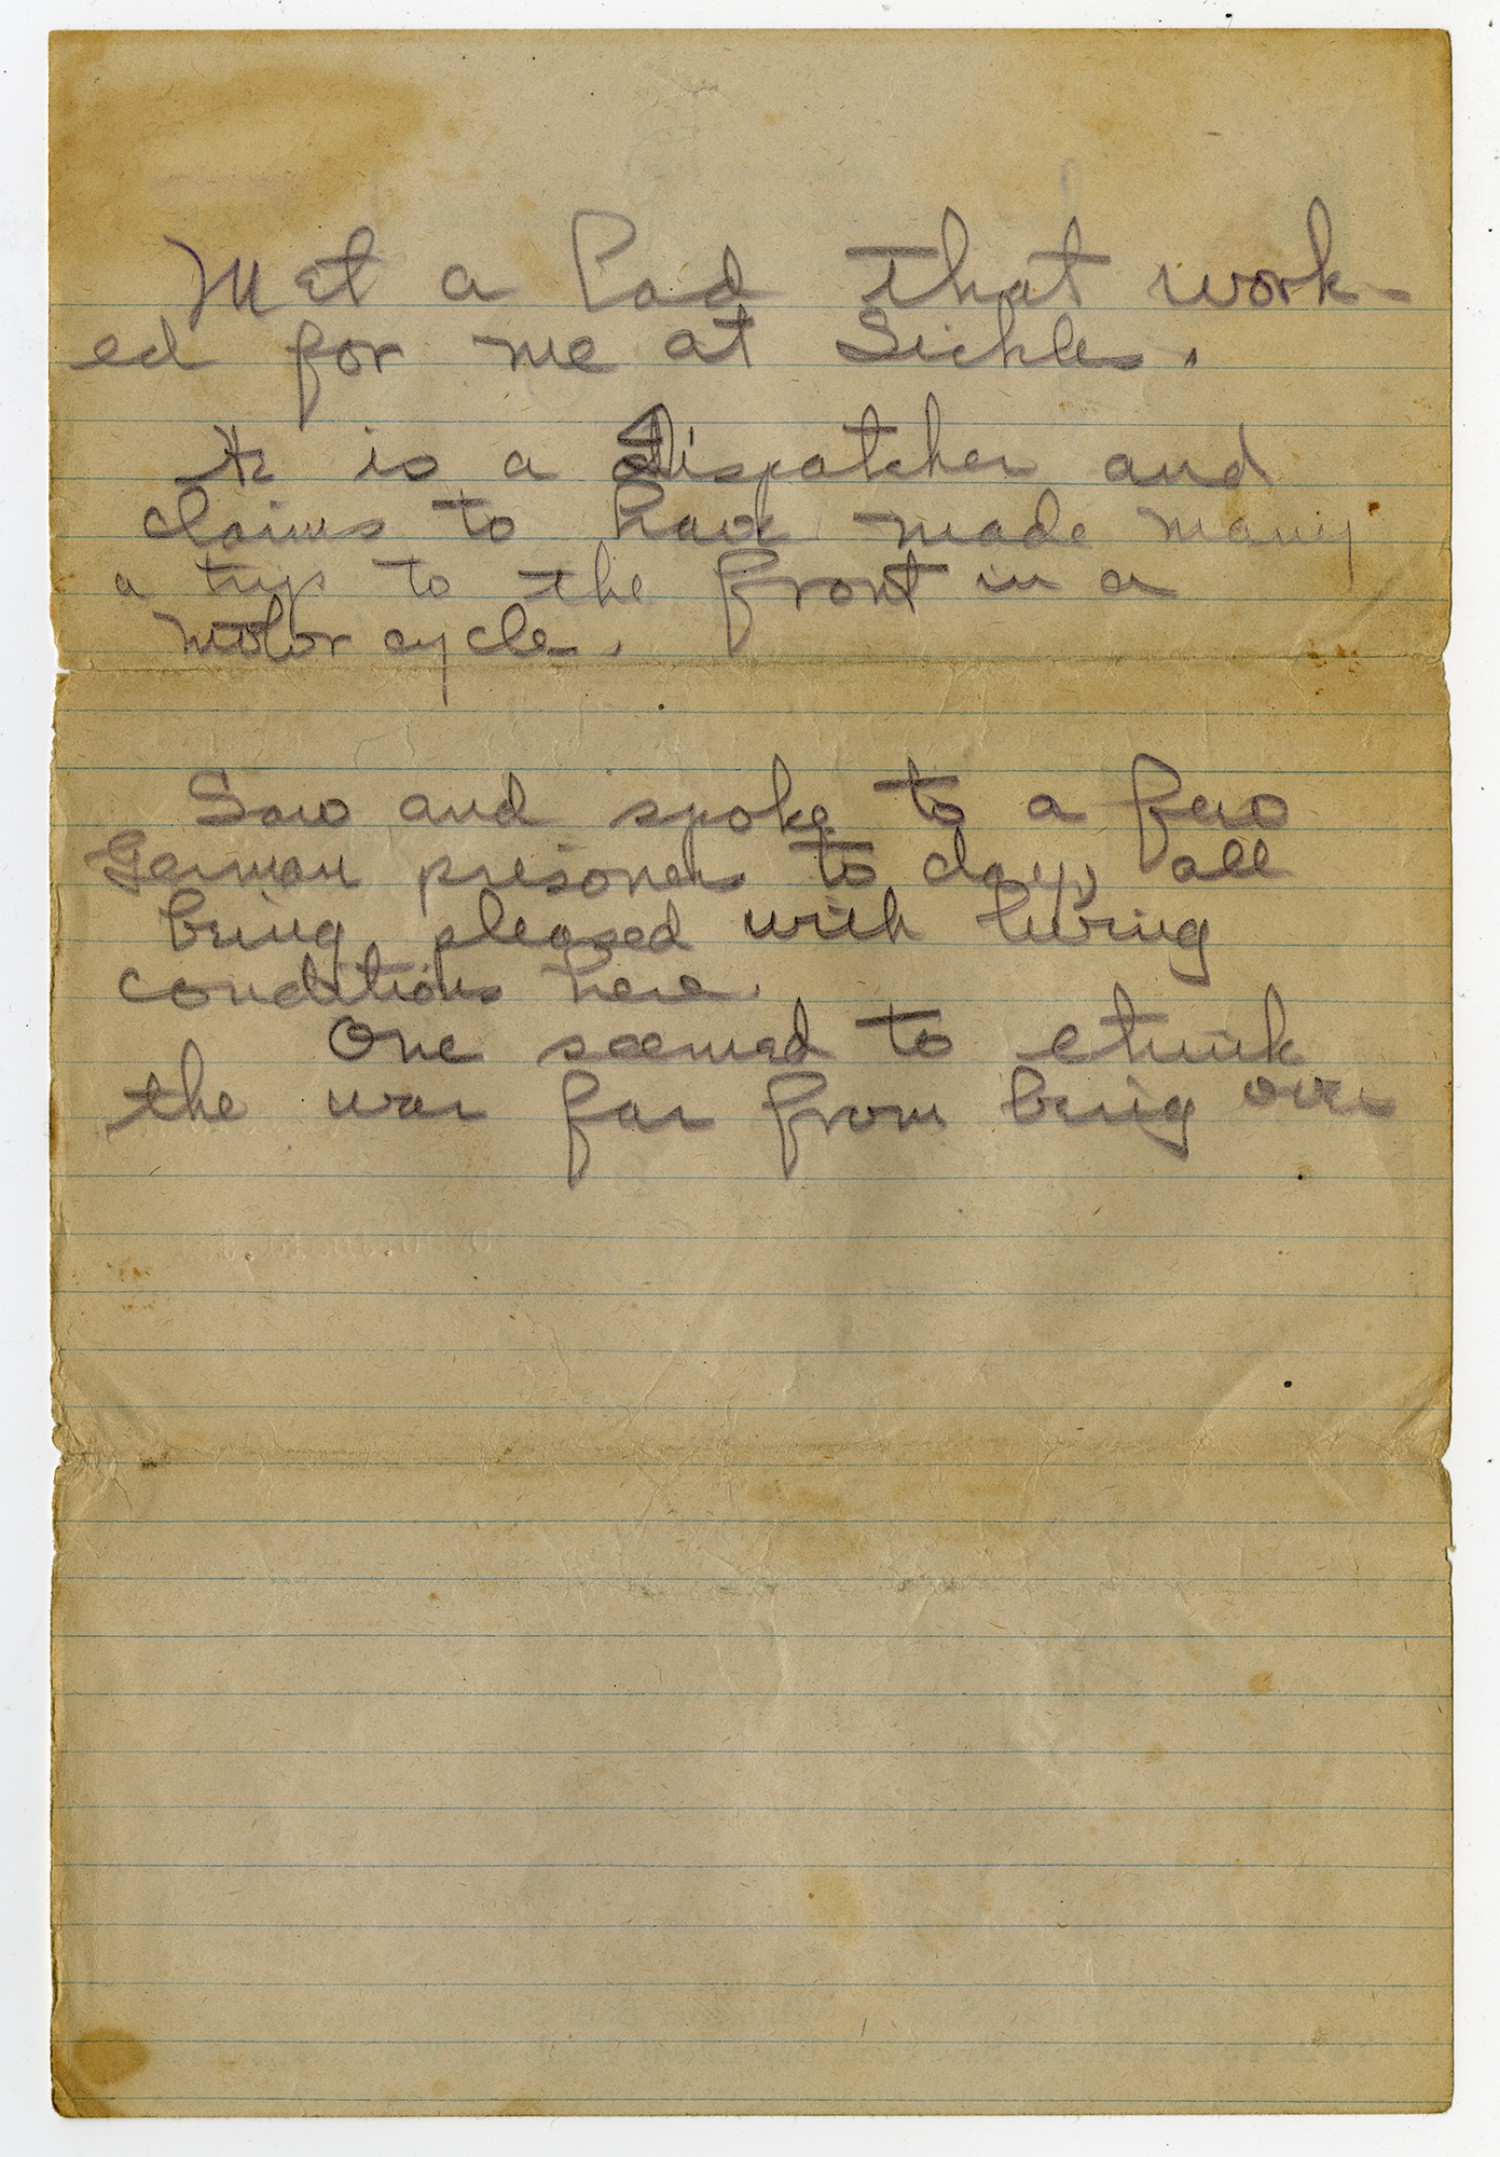 Met a Lad that work-
ed for me at Sickles.
He is a dispatcher and
claims to have made many
a trip to the front in a
motor cycle.
Saw and spoke to a few
German prisoners to day, all
being pleased with living
conditions here.
One seemed to think
the war far from being over